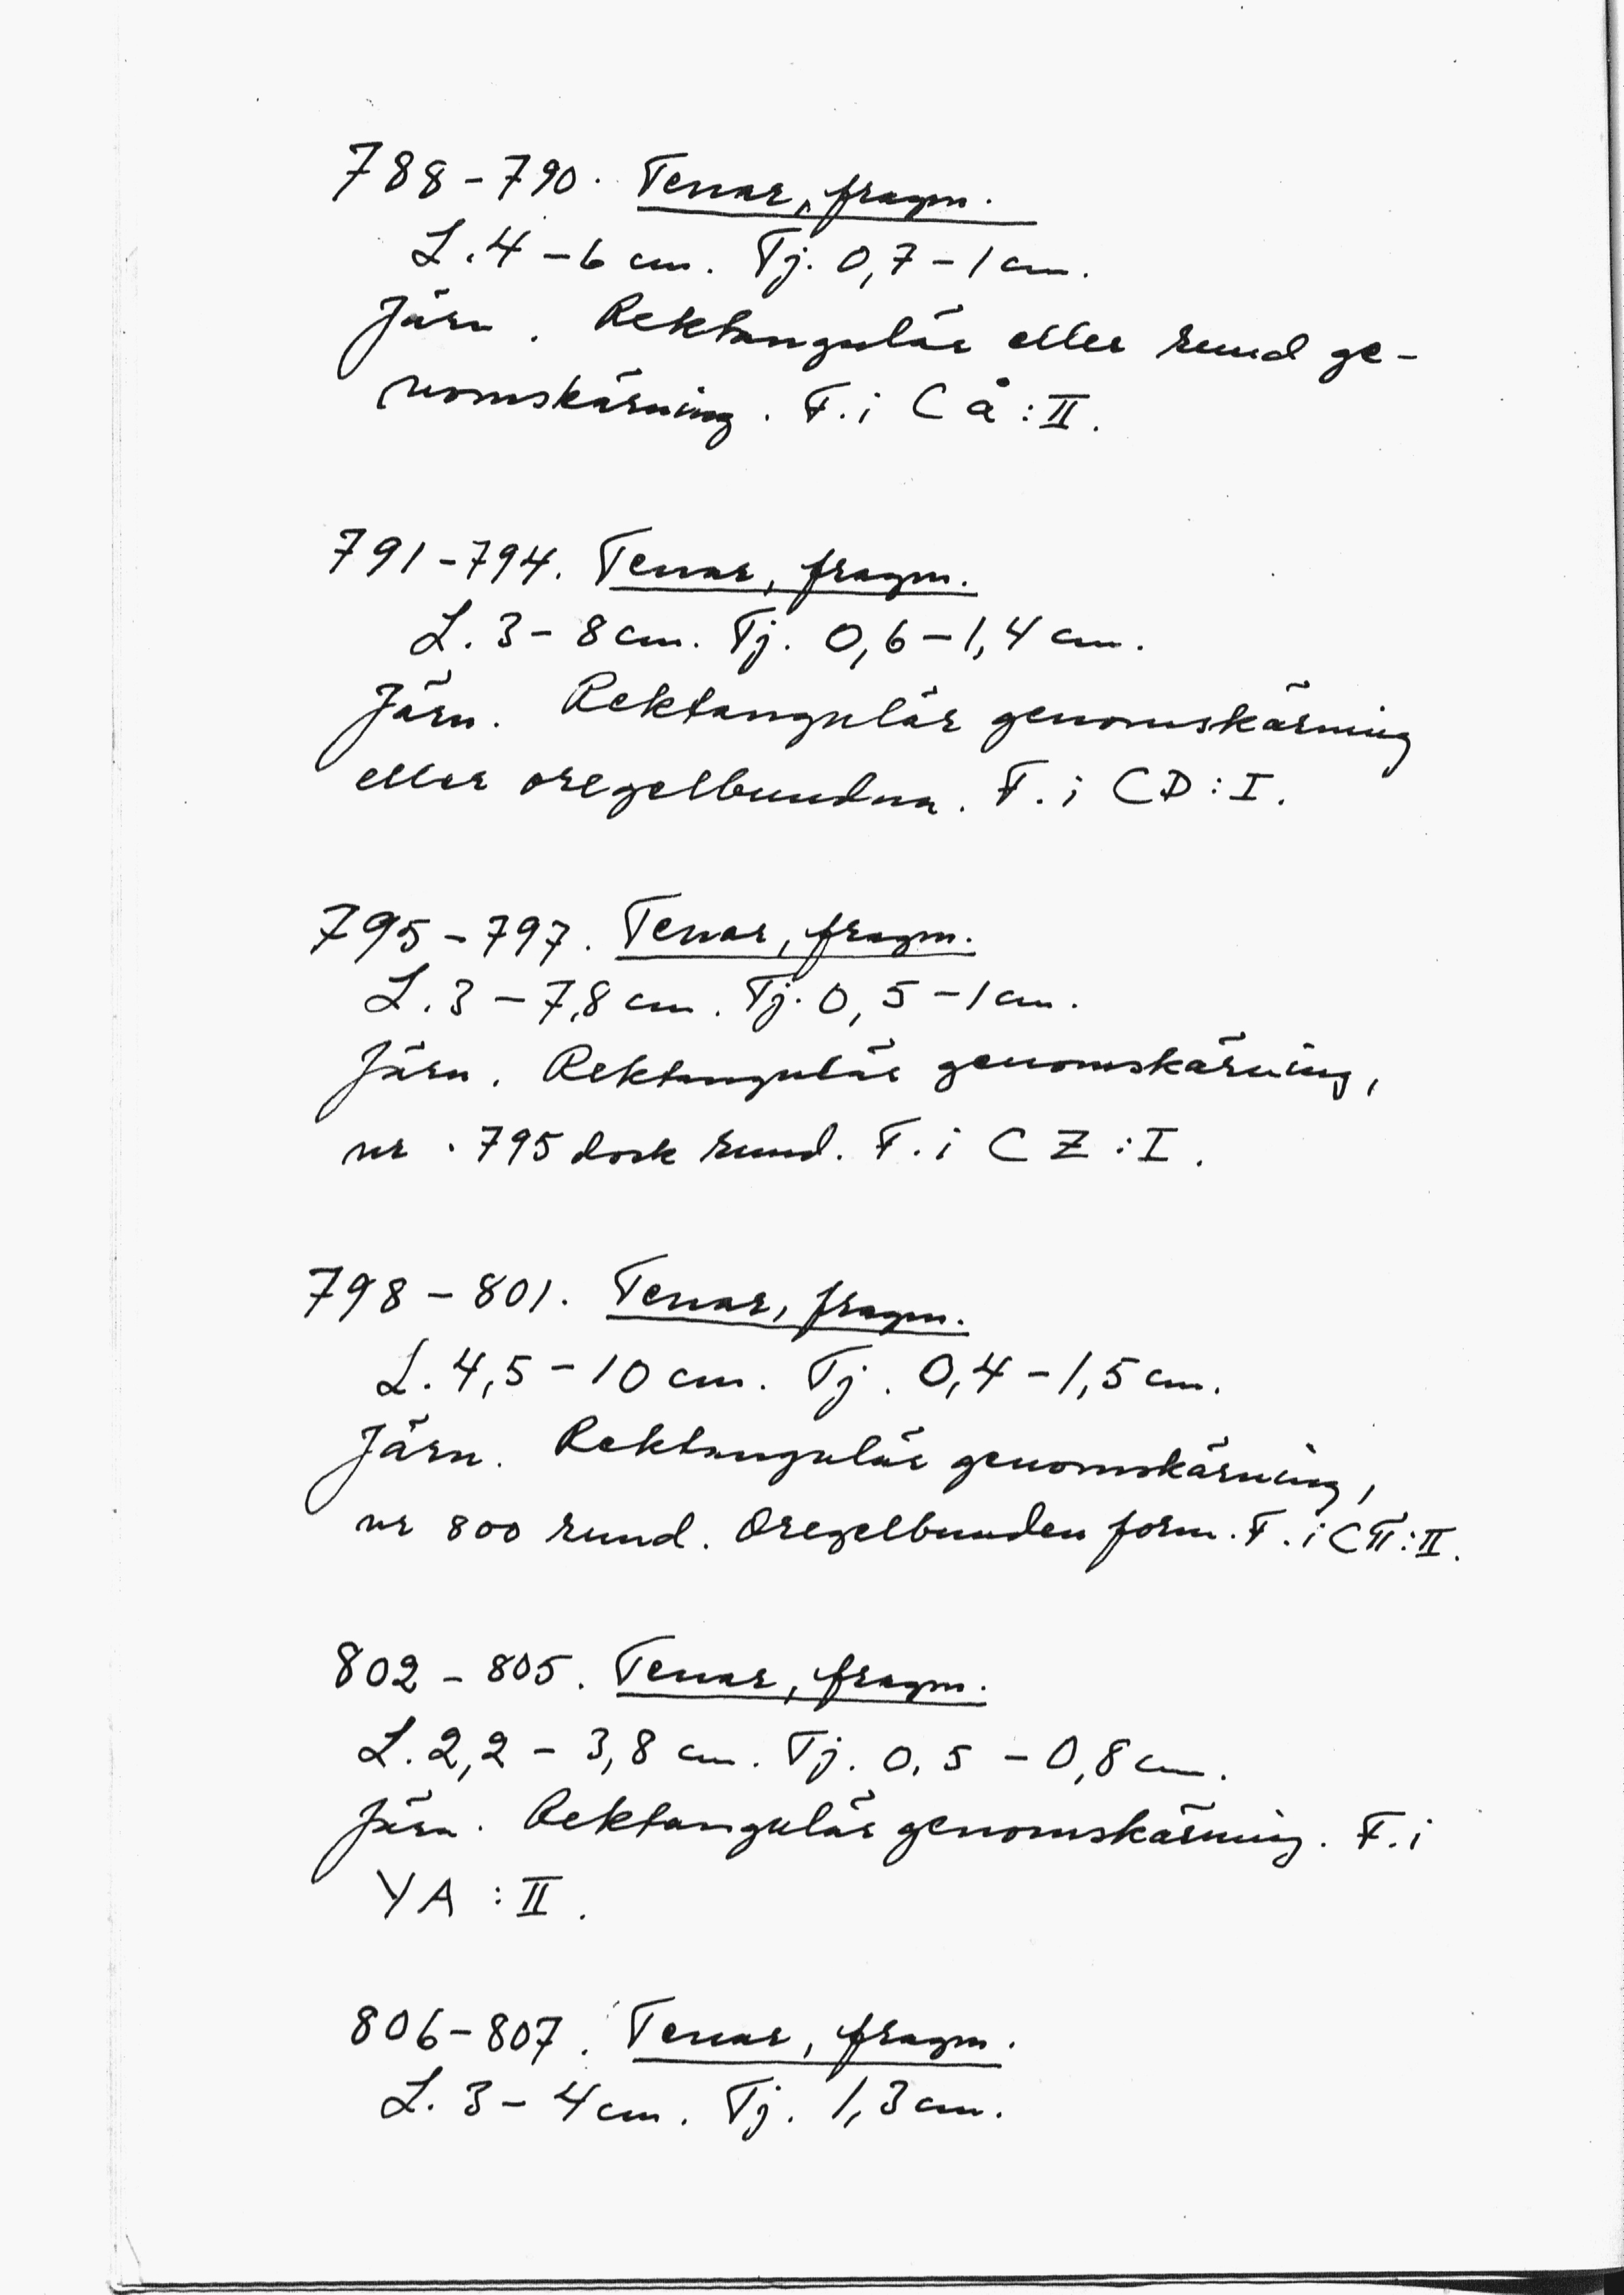 788-790. Tenar, fragm.
L. 4-6 cm. Tj. 0,7-1 cm.
Järn. Rektangulär eller rund ge-
nomskärning. F. i CÅ:II.
791-794. Tenar, fragm.
L. 3-8 cm. Tj. 0,6-1,4 cm.
Järn. Rektangulär genomskärning
eller oregelbundna. F. i CD:I.
795-797. Tenar, fragm.
L. 3-7,8 cm. Tj. 0,5-1 cm.
Järn. Rektangulär genomskärning,
nr. 795 dock rund. F. i CZ:I.
798-801. Tenar, fragm.
L. 4,5-10 cm. Tj. 0,4-1,5 cm.
Järn. Rektangulär genomskärning,
nr 800 rund. Oregelbunden form. F. i CÄ:II.
802-805. Tenar, fragm.
L. 2,2-3,8 cm. Tj. 0,5-0,8 cm.
Järn. Rektangulär genomskärning. F. i
YA:II.
806-807. Tenar, fragm.
L. 3-4 cm. Tj. 1,3 cm.